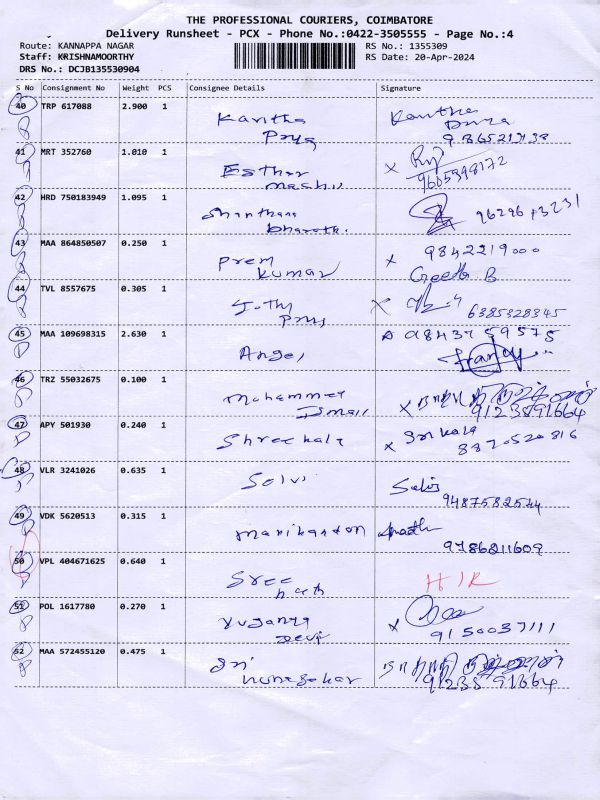 THE PROFESSIONAL COURIERS, COIMBATORE
Delivery Runsheet - PCX - Phone No.:0422-3505555 - Page No.:4
Route: KANNAPPA NAGAR RS No.: 1355309
Staff: KRISHNAMOORTHY RS Date: 20-Apr-2024
DRS No.: DCJB135530904
S No Consignment No Weight PCS Consignee Details Signature
40 TRP 617088 2.900 1 Kavitha Kavitha
Priya
41 MRT 352760 1.010 1 Esther
9605398172
42 HRD 750183949 1.095 1 Shanthana
Bharath.
43 MAA 864850507 0.250 1 Prem x 9842219000
Kumar Geetha B
44 TVL 8557675 0.305 1 Jothy x
Priy 6385328345
45 MAA 109698315 2.630 1 Angel 9843759575
46 TRZ 55032675 0.100 1 Mohammed
Ismail x 9123891664
47 APY 501930 0.240 1 Shreekala x Srikala
8870520816
48 VLR 3241026 0.635 1 Selvi Selvi
9487582544
49 VDK 5620513 0.315 1 Manikandan
9786211609
50 VPL 404671625 0.640 1 Sree
51 POL 1617780 0.270 1 x
Devi 9150037111
52 MAA 572455120 0.475 1 Sri
91238 91664